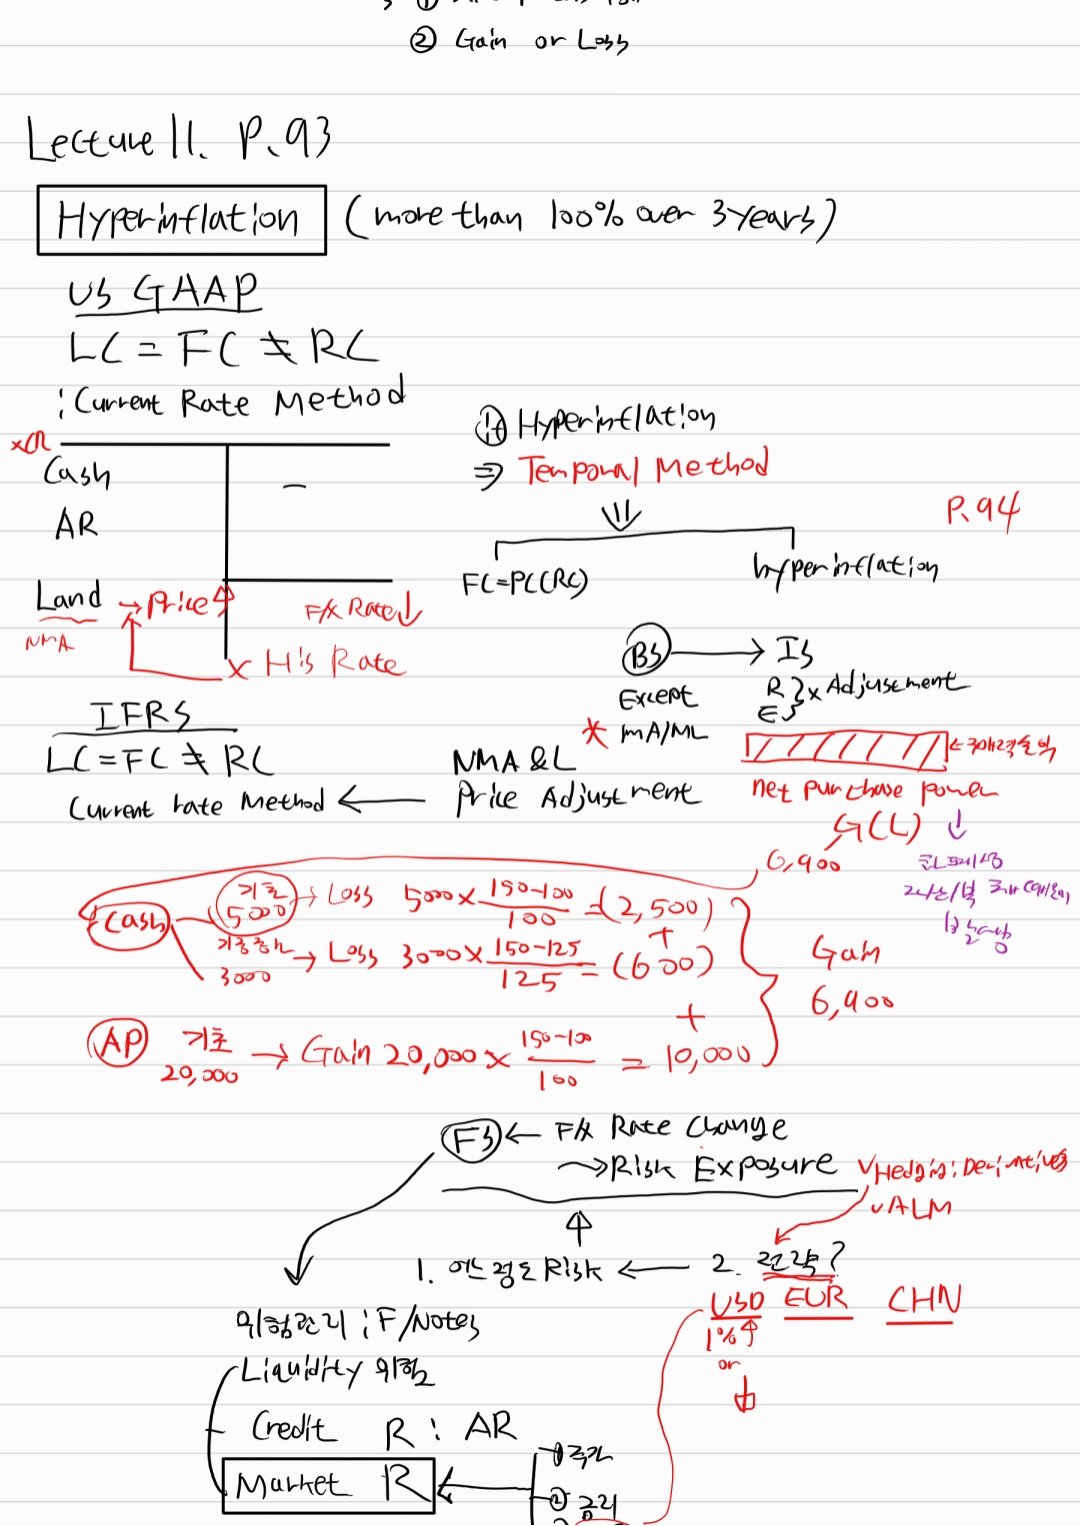 ② Gain or Loss
Lecture 11. P.93
Hyperinflation (more than 100% over 3 years)
US GAAP
LC = FC ≠ RC
: Current Rate Method
xCR
Cash
AR
Land → Price ↑
NMA
F/X Rate ↓
x His Rate
if Hyperinflation
⇒ Temporal Method
P.94
FC=PC(RC)
hyperinflation
BS → IS
Except
* MA/ML
R
E } x Adjustment
NMA & L
Price Adjustment
← 구매력손익
net purchase power
G(L) ↓
6,900
IFRS
LC = FC ≠ RC
Current rate Method ←
Cash
기초 5000 → Loss 5000 x (150-100)/100 = (2,500)
+
기중증가 3000 → Loss 3000 x (150-125)/125 = (600)
+
AP 기초 20,000 → Gain 20,000 x (150-100)/100 = 10,000
Gain
6,900
FS ← F/X Rate Change
→ Risk Exposure
✓ Hedging: Derivatives
✓ ALM
1. 어느정도 Risk ← 2. 전략?
USD EUR CHN
1% ↑
or
↓
위험관리 : F/Notes
Liquidity 위험
Credit R : AR
Market R ←
① 주가
② 금리